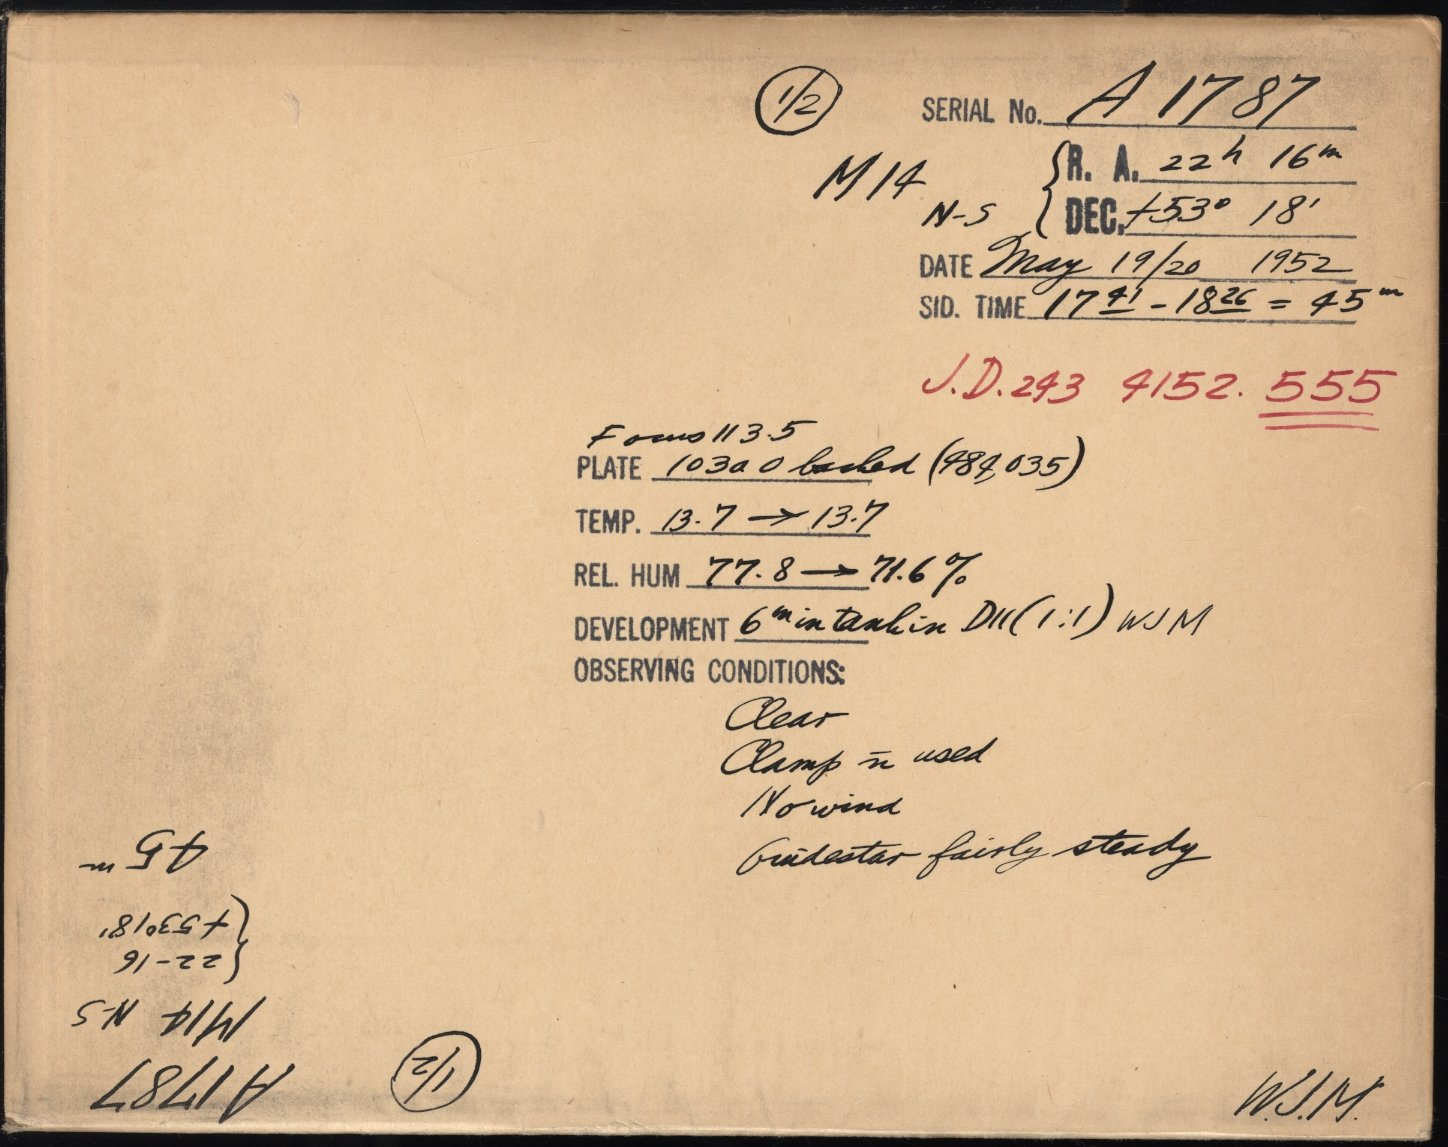 1/2
SERIAL No. A 1787
M 14
N-S
R. A. 22h 16m
DEC. +53° 18'
DATE May 19/20 1952
SID. TIME 17 41 - 18 26 = 45m
J.D. 243 4152. 555
Focus 113.5
PLATE 103a O backed (484,035)
TEMP. 13.7 → 13.7
REL. HUM 77.8 → 71.6%
DEVELOPMENT 6m in tank in D11 (1:1) WJM
OBSERVING CONDITIONS:
Clear
Clamp n̄ used
No wind
Guidestar fairly steady
W.J.M.
1/2
A1787
M14 N-S
22-16
+53°18'
45m